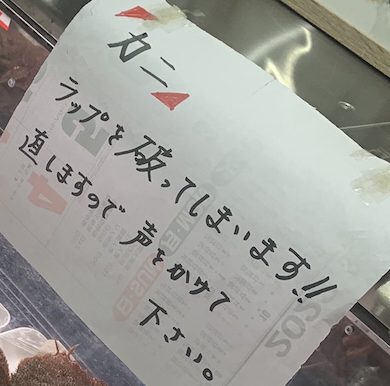 カニ
ラップを破ってしまいます!!
直しますので声をかけて
下さい。